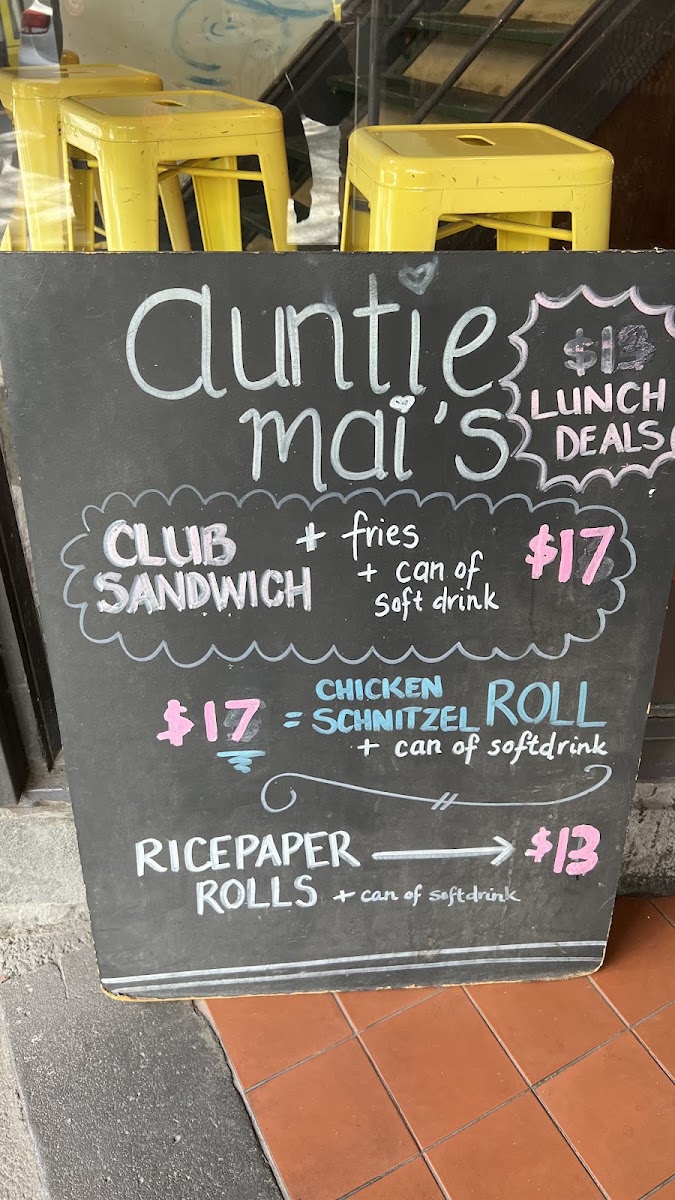 auntie
mai's
$13
LUNCH
DEALS
CLUB
SANDWICH
+ fries
+ can of
soft drink
$17
$17 = CHICKEN
SCHNITZEL ROLL
+ can of softdrink
RICEPAPER → $13
ROLLS + can of softdrink